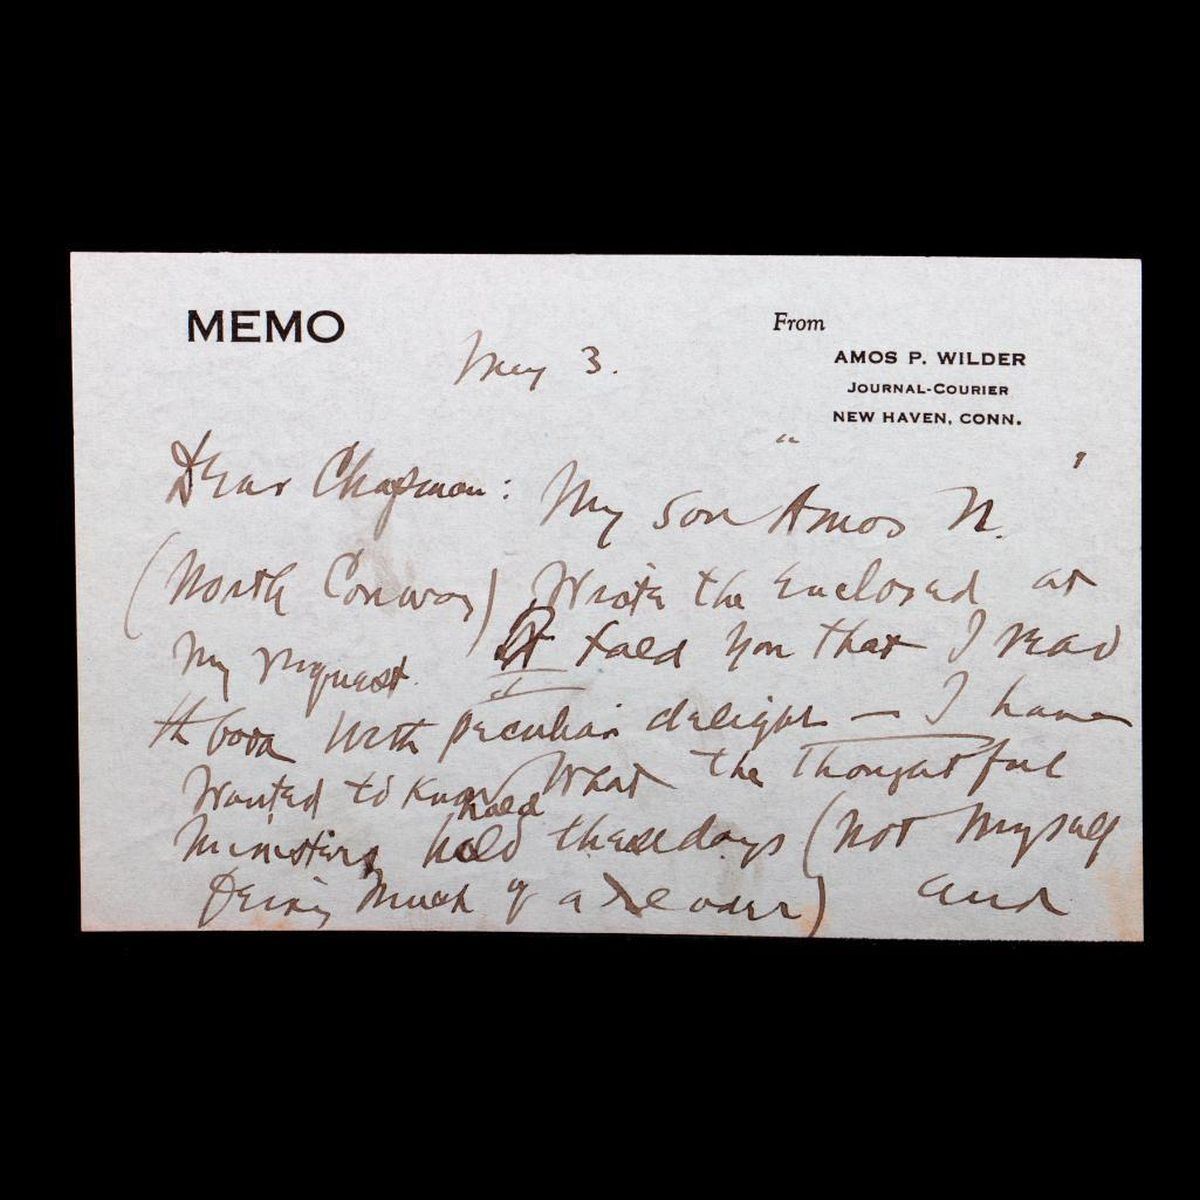 MEMO
From
AMOS P. WILDER
JOURNAL-COURIER
NEW HAVEN, CONN.
May 3.
Dear Chapman: My son Amos N.
(North Conway) Wrote the enclosed at
my request. I told you that I read
th book with peculiar delight — I have
wanted to know what the thoughtful
hold
ministers hold these days (not myself
being much of a reader) and